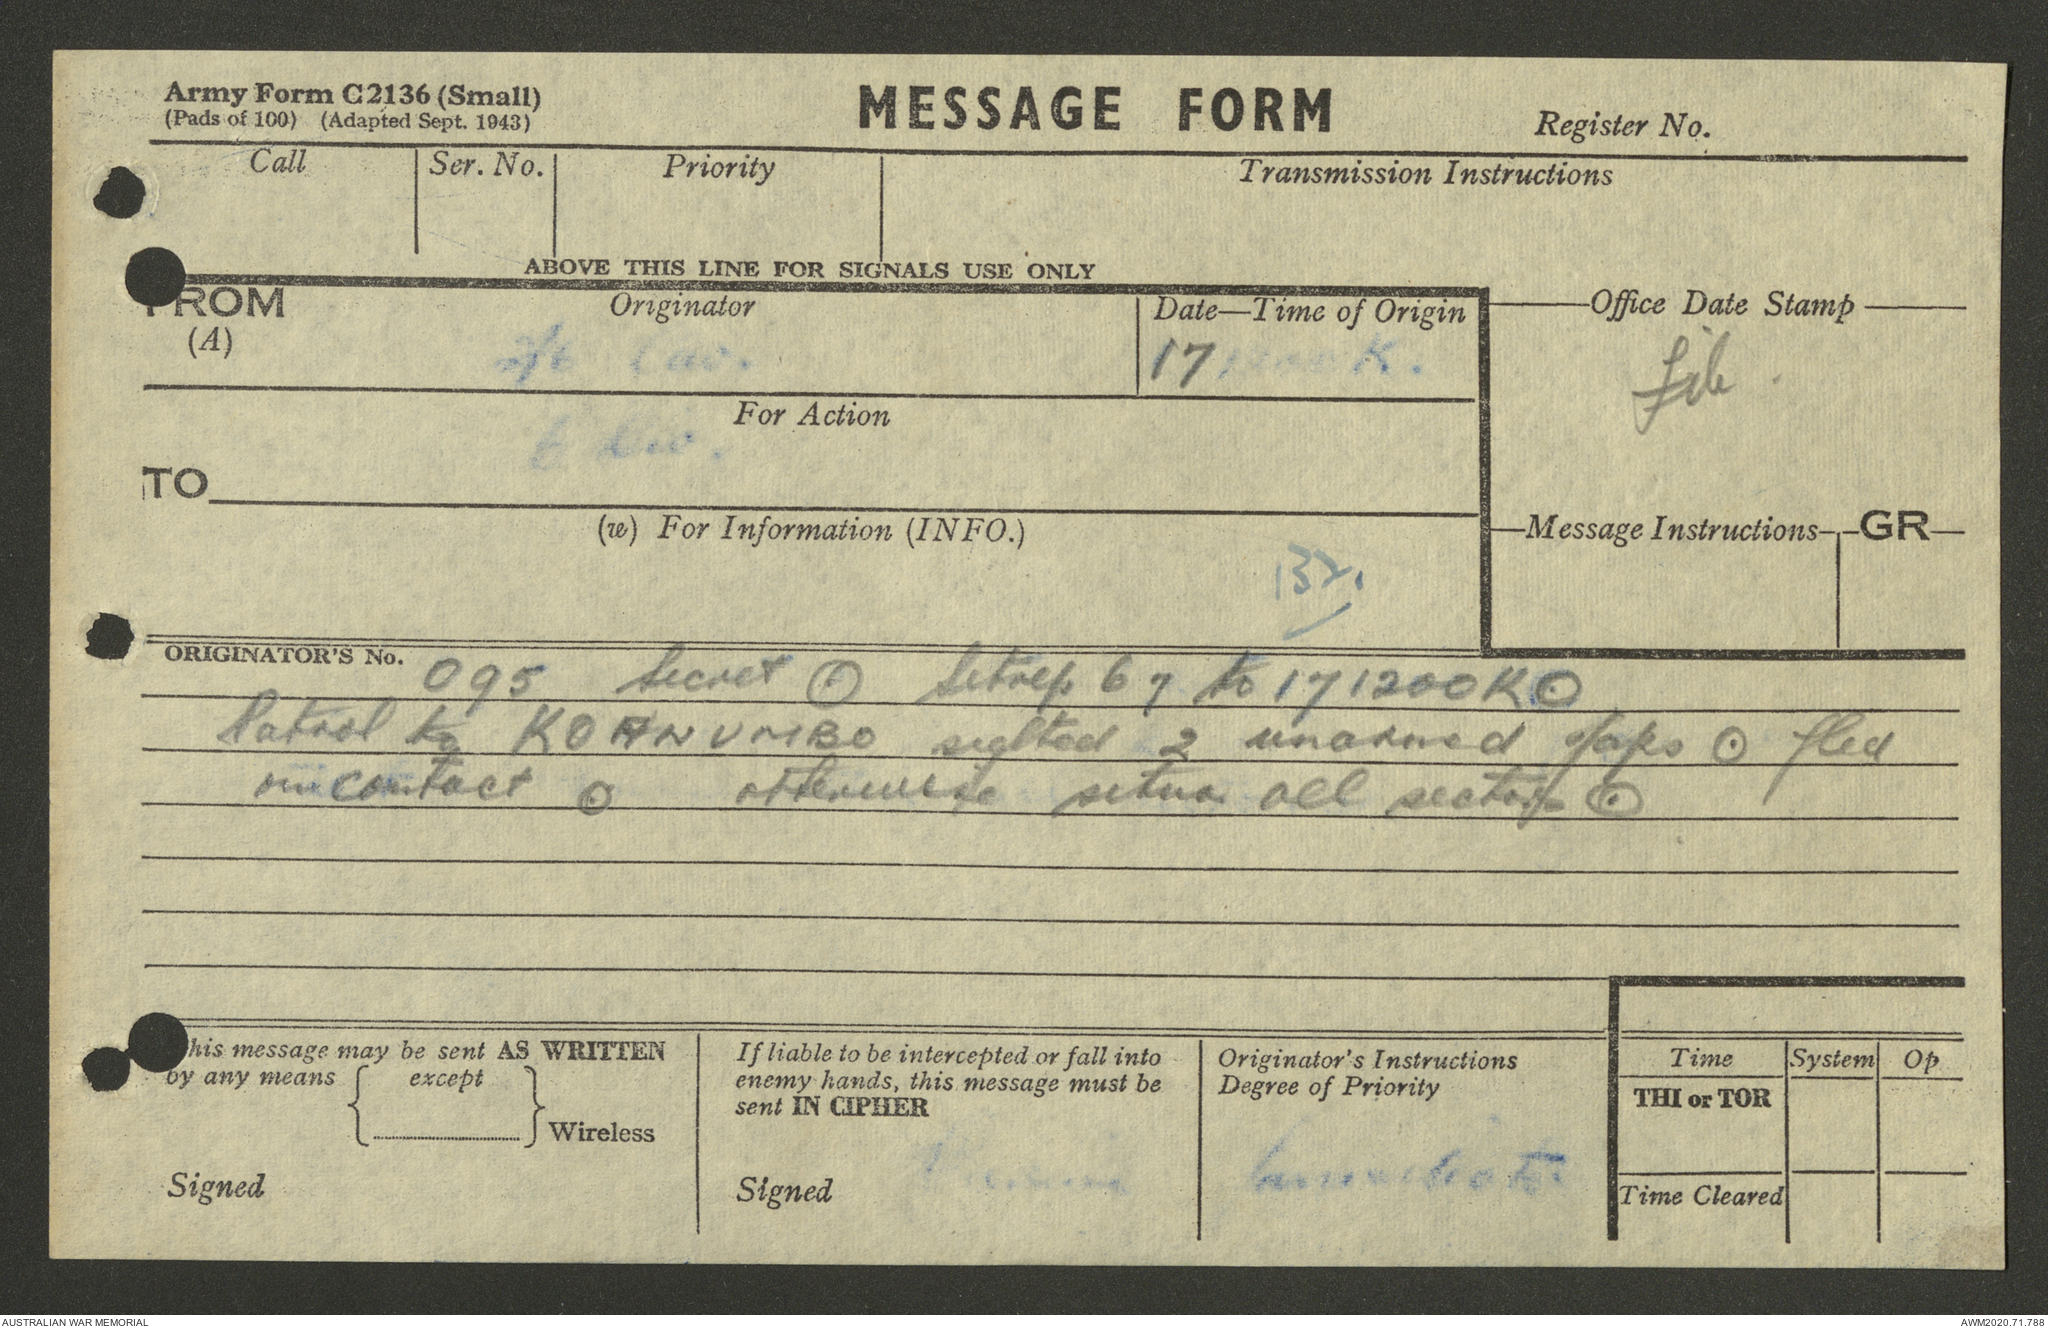 Army Form C2136 (Small)
(Pads of 100) (Adapted Sept. 1943)
MESSAGE FORM
Register No.
Call
Ser. No.
Priority
Transmission Instructions
ABOVE THIS LINE FOR SIGNALS USE ONLY
FROM
(A)
Originator
Date—Time of Origin
Office Date Stamp
2/6 Cav.
17 1200 K.
File.
For Action
6 Div.
TO
(w) For Information (INFO.)
Message Instructions
GR
132.
ORIGINATOR'S No.
095 Secret ⊙ Sitrep 67 to 171200K ⊙
Patrol to sighted 2 unarmed Japs ⊙ fled
on contact ⊙ otherwise situa all sectors ⊙
This message may be sent AS WRITTEN
by any means
except
Wireless
Signed
If liable to be intercepted or fall into
enemy hands, this message must be
sent IN CIPHER
Signed
Originator's Instructions
Degree of Priority
Immediate
Time
System
Op
THI or TOR
Time Cleared
AUSTRALIAN WAR MEMORIAL
AWM2020.71.788